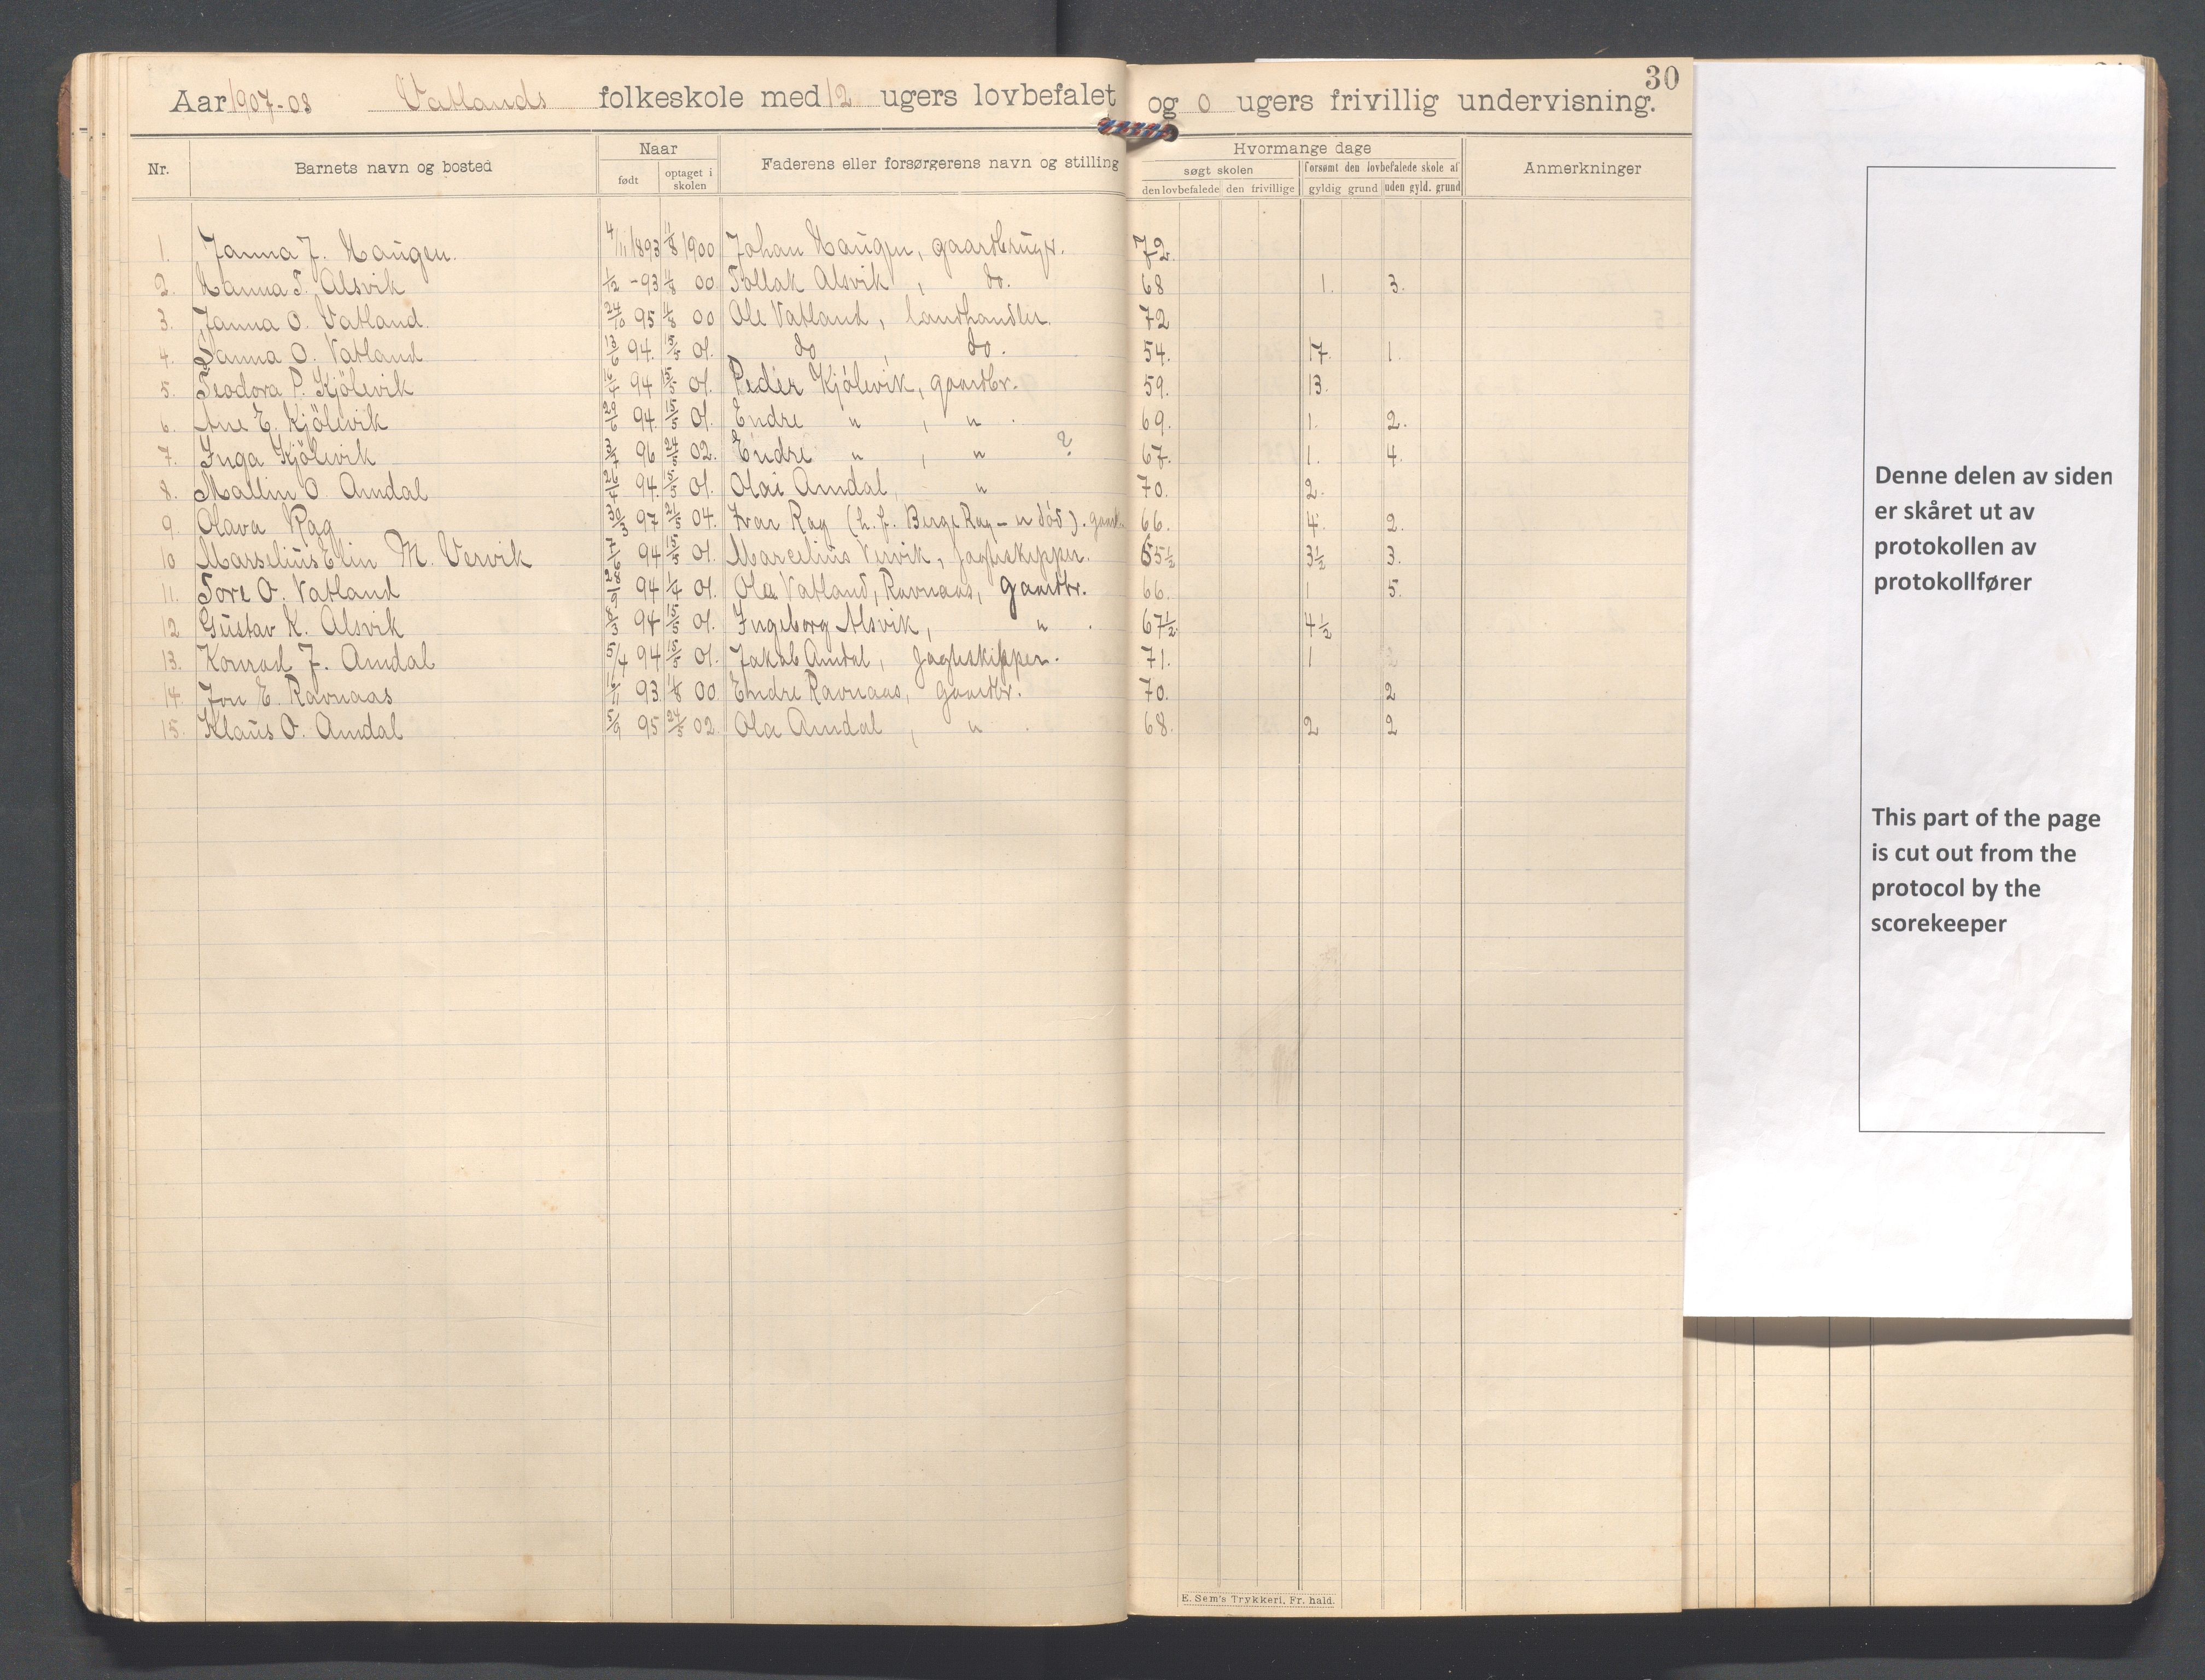 30
Aar 1907-08 Vatlands folkeskole med 12 ugers lovbefalet og 0 ugers frivillig undervisning.
Nr. Barnets navn og bosted Naar født optaget i skolen Faderens eller forsørgerens navn og stilling Hvormange dage søgt skolen den lovbefalede den frivillige forsømt den lovbefalede skole af gyldig grund uden gyld. grund Anmerkninger
1. Janna J. Haugen. 4/11 1893 11/8 1900 Johan Haugen, gaardbruger. 72.
2. Hanna T. Alsvik 1/2 -93 11/8 00 Tollak Alsvik, do. 68 1. 3.
3. Janna O. Vatland. 24/10 95 11/8 00 Ole Vatland, landhandler. 72
4. Sanna O. Vatland 94. 15/5 01. do, do. 54. 17. 1.
5. Teodora P. Kjölevik 94 15/5 01. Peder Kjölevik, gaardbr. 59. 13.
6. Ane E. Kjölevik 94. 15/5 01. Endre " , " . 69. 1. 2.
7. Inga Kjölevik 96 24/5 02. Endre " , " ? 67. 1. 4.
8. Mallin O. Amdal 94. 15/5 01. Olai Amdal, " 70. 2.
9. Olava Røg 30/3 97 21/5 04. Ivar Røg (h. f. Berge Røg - er död). gaardb. 66. 4. 2.
10 Marselius Elin M. Vervik 94 15/5 01. Marcelius Vervik, jagteskipper. 65½ 3½ 3.
11. Tore O. Vatland 94 1/4 01. Ola Vatland, Ravnaas, gaardbr. 66. 1 5.
12 Gustav K. Alsvik 94 15/5 01. Ingeborg Alsvik, " . 67½ 4½
13. Konrad J. Amdal 5/4 94 15/5 01. Jakob Amdal, jagteskipper. 71. 1
14. Jon E. Ravnaas 93. 11/8 00 Endre Ravnaas, gaardbr. 70. 2
15. Klaus O. Amdal 5/9 95 24/5 02 Ola Amdal, " . 68. 2 2
E. Sem's Trykkeri, Fr. hald.
Denne delen av siden
er skåret ut av
protokollen av
protokollfører
This part of the page
is cut out from the
protocol by the
scorekeeper